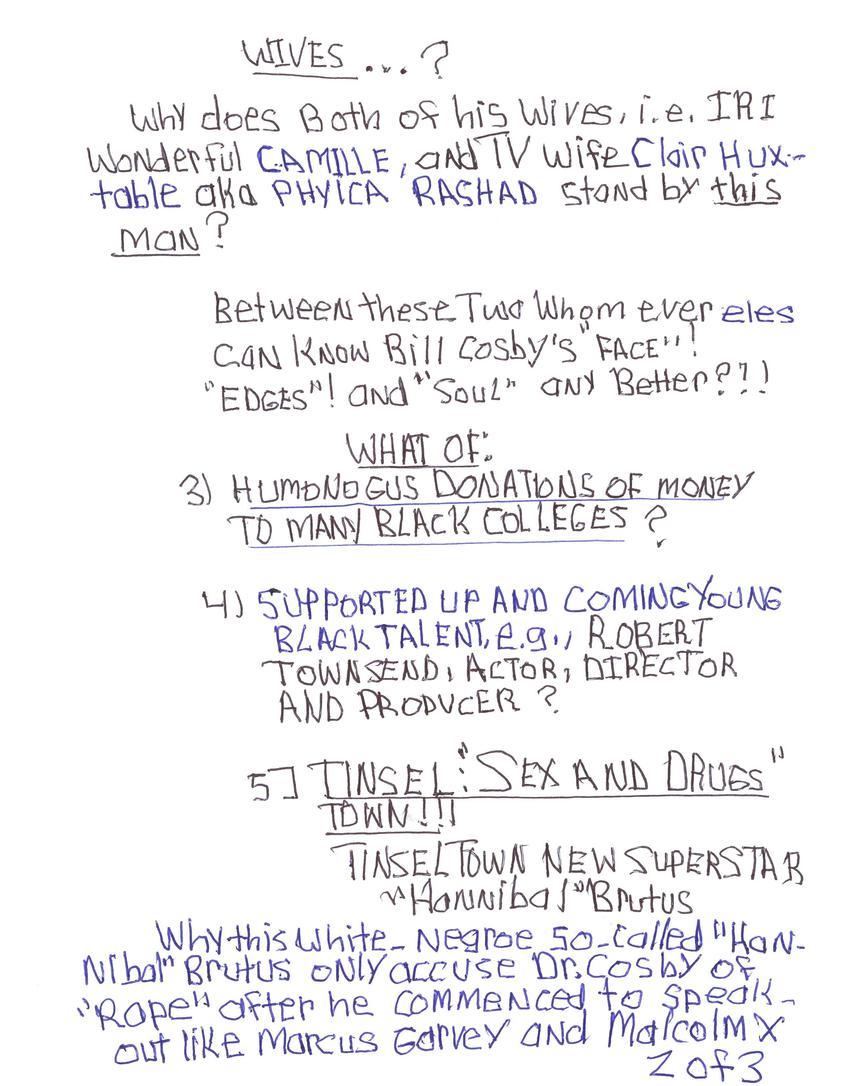 WIVES ...?
Why does Both of his Wives, i.e. IRI
Wonderful CAMILLE, and TV Wife Clair Hux-
table aka PHYICA RASHAD stand by this
MAN?
Between these Two Whom ever eles
CAN KNOW Bill Cosby's "FACE"!
"EDGES"! and "Soul" ANY Better?!!
WHAT OF:
3) HUMONOGUS DONATIONS OF MONEY
TO MANY BLACK COLLEGES ?
4) SUPPORTED UP AND COMING YOUNG
BLACK TALENT, e.g., ROBERT
TOWNSEND, ACTOR, DIRECTOR
AND PRODUCER ?
5] TINSEL: "SEX AND DRUGS"
TOWN!!!
TINSELTOWN NEW SUPERSTAR
"Hannibal" Brutus
Why this White-Negroe so-called "HAN-
Nibal" Brutus only accuse Dr. Cosby of
"Rape" after he commenced to speak-
out like Marcus Garvey and Malcolm X
2 of 3